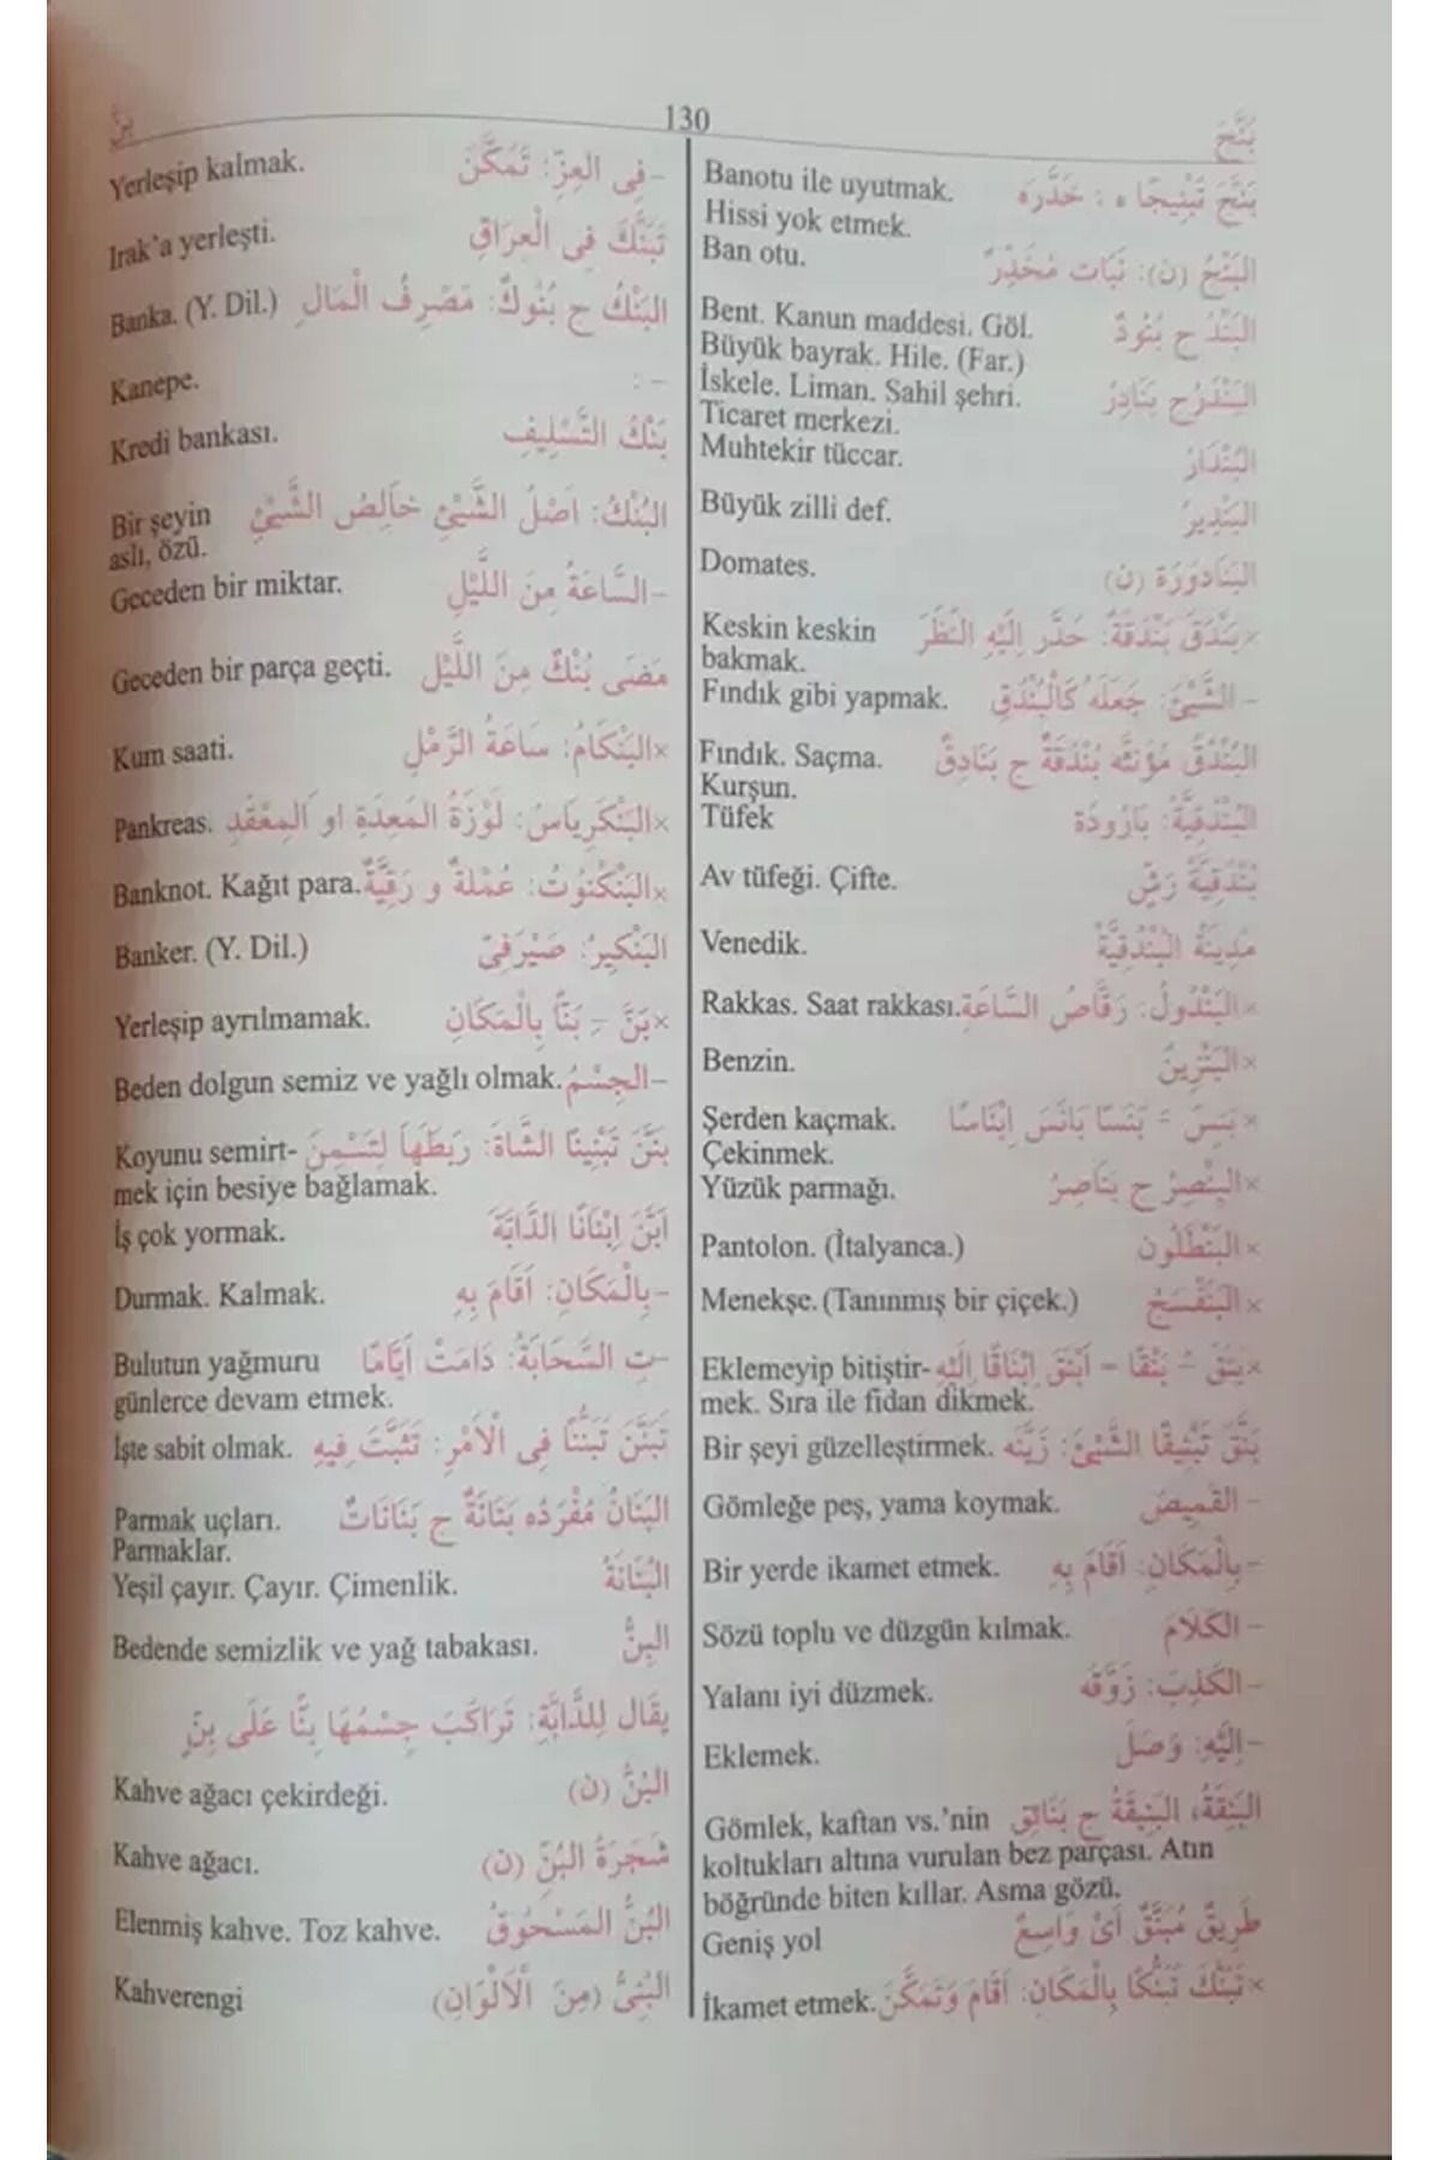 بَنَّجَ 130 بنّ
بَنَّجَ تَبْنِيجًا ه : خَدَّرَه Banotu ile uyutmak.
Hissi yok etmek.
البَنْجُ (ن): نَبَات مُخَدِّرٌ Ban otu.
البَنْدُ ج بُنُودٌ Bent. Kanun maddesi. Göl.
Büyük bayrak. Hile. (Far.)
البَنْدَرُ ج بَنَادِرُ İskele. Liman. Sahil şehri.
Ticaret merkezi.
البُنْدَارُ Muhtekir tüccar.
البَنْدِيرُ Büyük zilli def.
البَنَادُورَة (ن) Domates.
×بَنْدَقَ بَنْدَقَةً: حَدَّر اِلَيْهِ النَّظَرَ Keskin keskin
bakmak.
- الشَّيْئَ: جَعَلَهُ كَالْبُنْدُقِ Fındık gibi yapmak.
البُنْدُقُ مُؤَنَّثُه بُنْدُقَةٌ ج بَنَادِقُ Fındık. Saçma.
Kurşun.
البُنْدُقِيَّةُ: بَارُودَة Tüfek
بُنْدُقِيَّةُ رَشٍّ Av tüfeği. Çifte.
مَدِينَةُ الْبُنْدُقِيَّةُ Venedik.
×البَنْدُولُ: رَقَّاصُ السَّاعَةِ Rakkas. Saat rakkası.
×البَنْزِينُ Benzin.
×بَنِسَ = بَنَسًا بَانَسَ اِبْنَاسًا Şerden kaçmak.
Çekinmek.
×البِنْصِرُ ج بَنَاصِرُ Yüzük parmağı.
×البَنْطَلُون Pantolon. (İtalyanca.)
×البَنَفْسَجُ Menekşe. (Tanınmış bir çiçek.)
×بَنَقَ - بَنْقًا = اَبْنَقَ اِبْنَاقًا اِلَيْهِ Eklemeyip bitiştir-
mek. Sıra ile fidan dikmek.
بَنَّقَ تَبْنِيقًا الشَّيْئَ: زَيَّنَه Bir şeyi güzelleştirmek.
- القَمِيصَ Gömleğe peş, yama koymak.
-بِالْمَكَانِ: اَقَامَ بِهِ Bir yerde ikamet etmek.
- الكَلاَمَ Sözü toplu ve düzgün kılmak.
-الكَذِبَ: زَوَّقَه Yalanı iyi düzmek.
-اِلَيْهِ: وَصَلَ Eklemek.
البَنِقَةُ، البَنِيقَةُ ج بَنَائِق Gömlek, kaftan vs.'nin
koltukları altına vurulan bez parçası. Atın
böğründe biten kıllar. Asma gözü.
طَرِيقٌ مُبَنَّقٌ اَىْ وَاسِعٌ Geniş yol
×تَبَنَّكَ تَبَنُّكًا بِالْمَكَانِ: اَقَامَ وَتَمَكَّنَ İkamet etmek.
-فِى العِزِّ: تَمَكَّنَ Yerleşip kalmak.
تَبَنَّكَ فِى الْعِرَاقِ Irak'a yerleşti.
البَنْكُ ج بُنُوكٌ: مَصْرِفُ الْمَالِ Banka. (Y. Dil.)
- : Kanepe.
بَنْكُ التَّسْلِيفِ Kredi bankası.
البُنْكُ: اَصْلُ الشَّيْئِ خَالِصُ الشَّيْئِ Bir şeyin
aslı, özü.
-السَّاعَةُ مِنَ اللَّيْلِ Geceden bir miktar.
مَضَى بُنْكٌ مِنَ اللَّيْلِ Geceden bir parça geçti.
×البَنْكَامُ: سَاعَةُ الرَّمْلِ Kum saati.
×البَنْكَرِيَاسُ: لَوْزَةُ المَعِدَةِ او المِعْقَدِ Pankreas.
×البَنْكْنُوتُ: عُمْلَةٌ و رَقِيَّةٌ Banknot. Kağıt para.
البَنْكِيرُ: صَيْرَفِىّ Banker. (Y. Dil.)
×بَنَّ - بَنًّا بِالْمَكَانِ Yerleşip ayrılmamak.
-الجِسْمُ Beden dolgun semiz ve yağlı olmak.
بَنَّنَ تَبْنِينًا الشَّاةَ: رَبَطَهَا لِتَسْمِنَ Koyunu semirt-
mek için besiye bağlamak.
اَبَنَّ اِبْنَانًا الدَّابَّةَ İş çok yormak.
-بِالْمَكَانِ: اَقَامَ بِهِ Durmak. Kalmak.
-تِ السَّحَابَةُ: دَامَتْ اَيَّامًا Bulutun yağmuru
günlerce devam etmek.
تَبَنَّنَ تَبَنُّنًا فِى الْاَمْرِ: تَثَبَّتَ فِيهِ İşte sabit olmak.
البَنَانُ مُفْرَدُه بَنَانَةٌ ج بَنَانَاتٌ Parmak uçları.
Parmaklar.
البُنَانَةُ Yeşil çayır. Çayır. Çimenlik.
البِنُّ Bedende semizlik ve yağ tabakası.
يقَال لِلدَّابَّةِ: تَرَاكَبَ جِسْمُهَا بِنًّا عَلَى بِنٍّ
البُنُّ (ن) Kahve ağacı çekirdeği.
شَجَرَةُ البُنِّ (ن) Kahve ağacı.
البُنُّ المَسْحُوقُ Elenmiş kahve. Toz kahve.
البُنِّىُّ (مِنَ الْاَلْوَانِ) Kahverengi